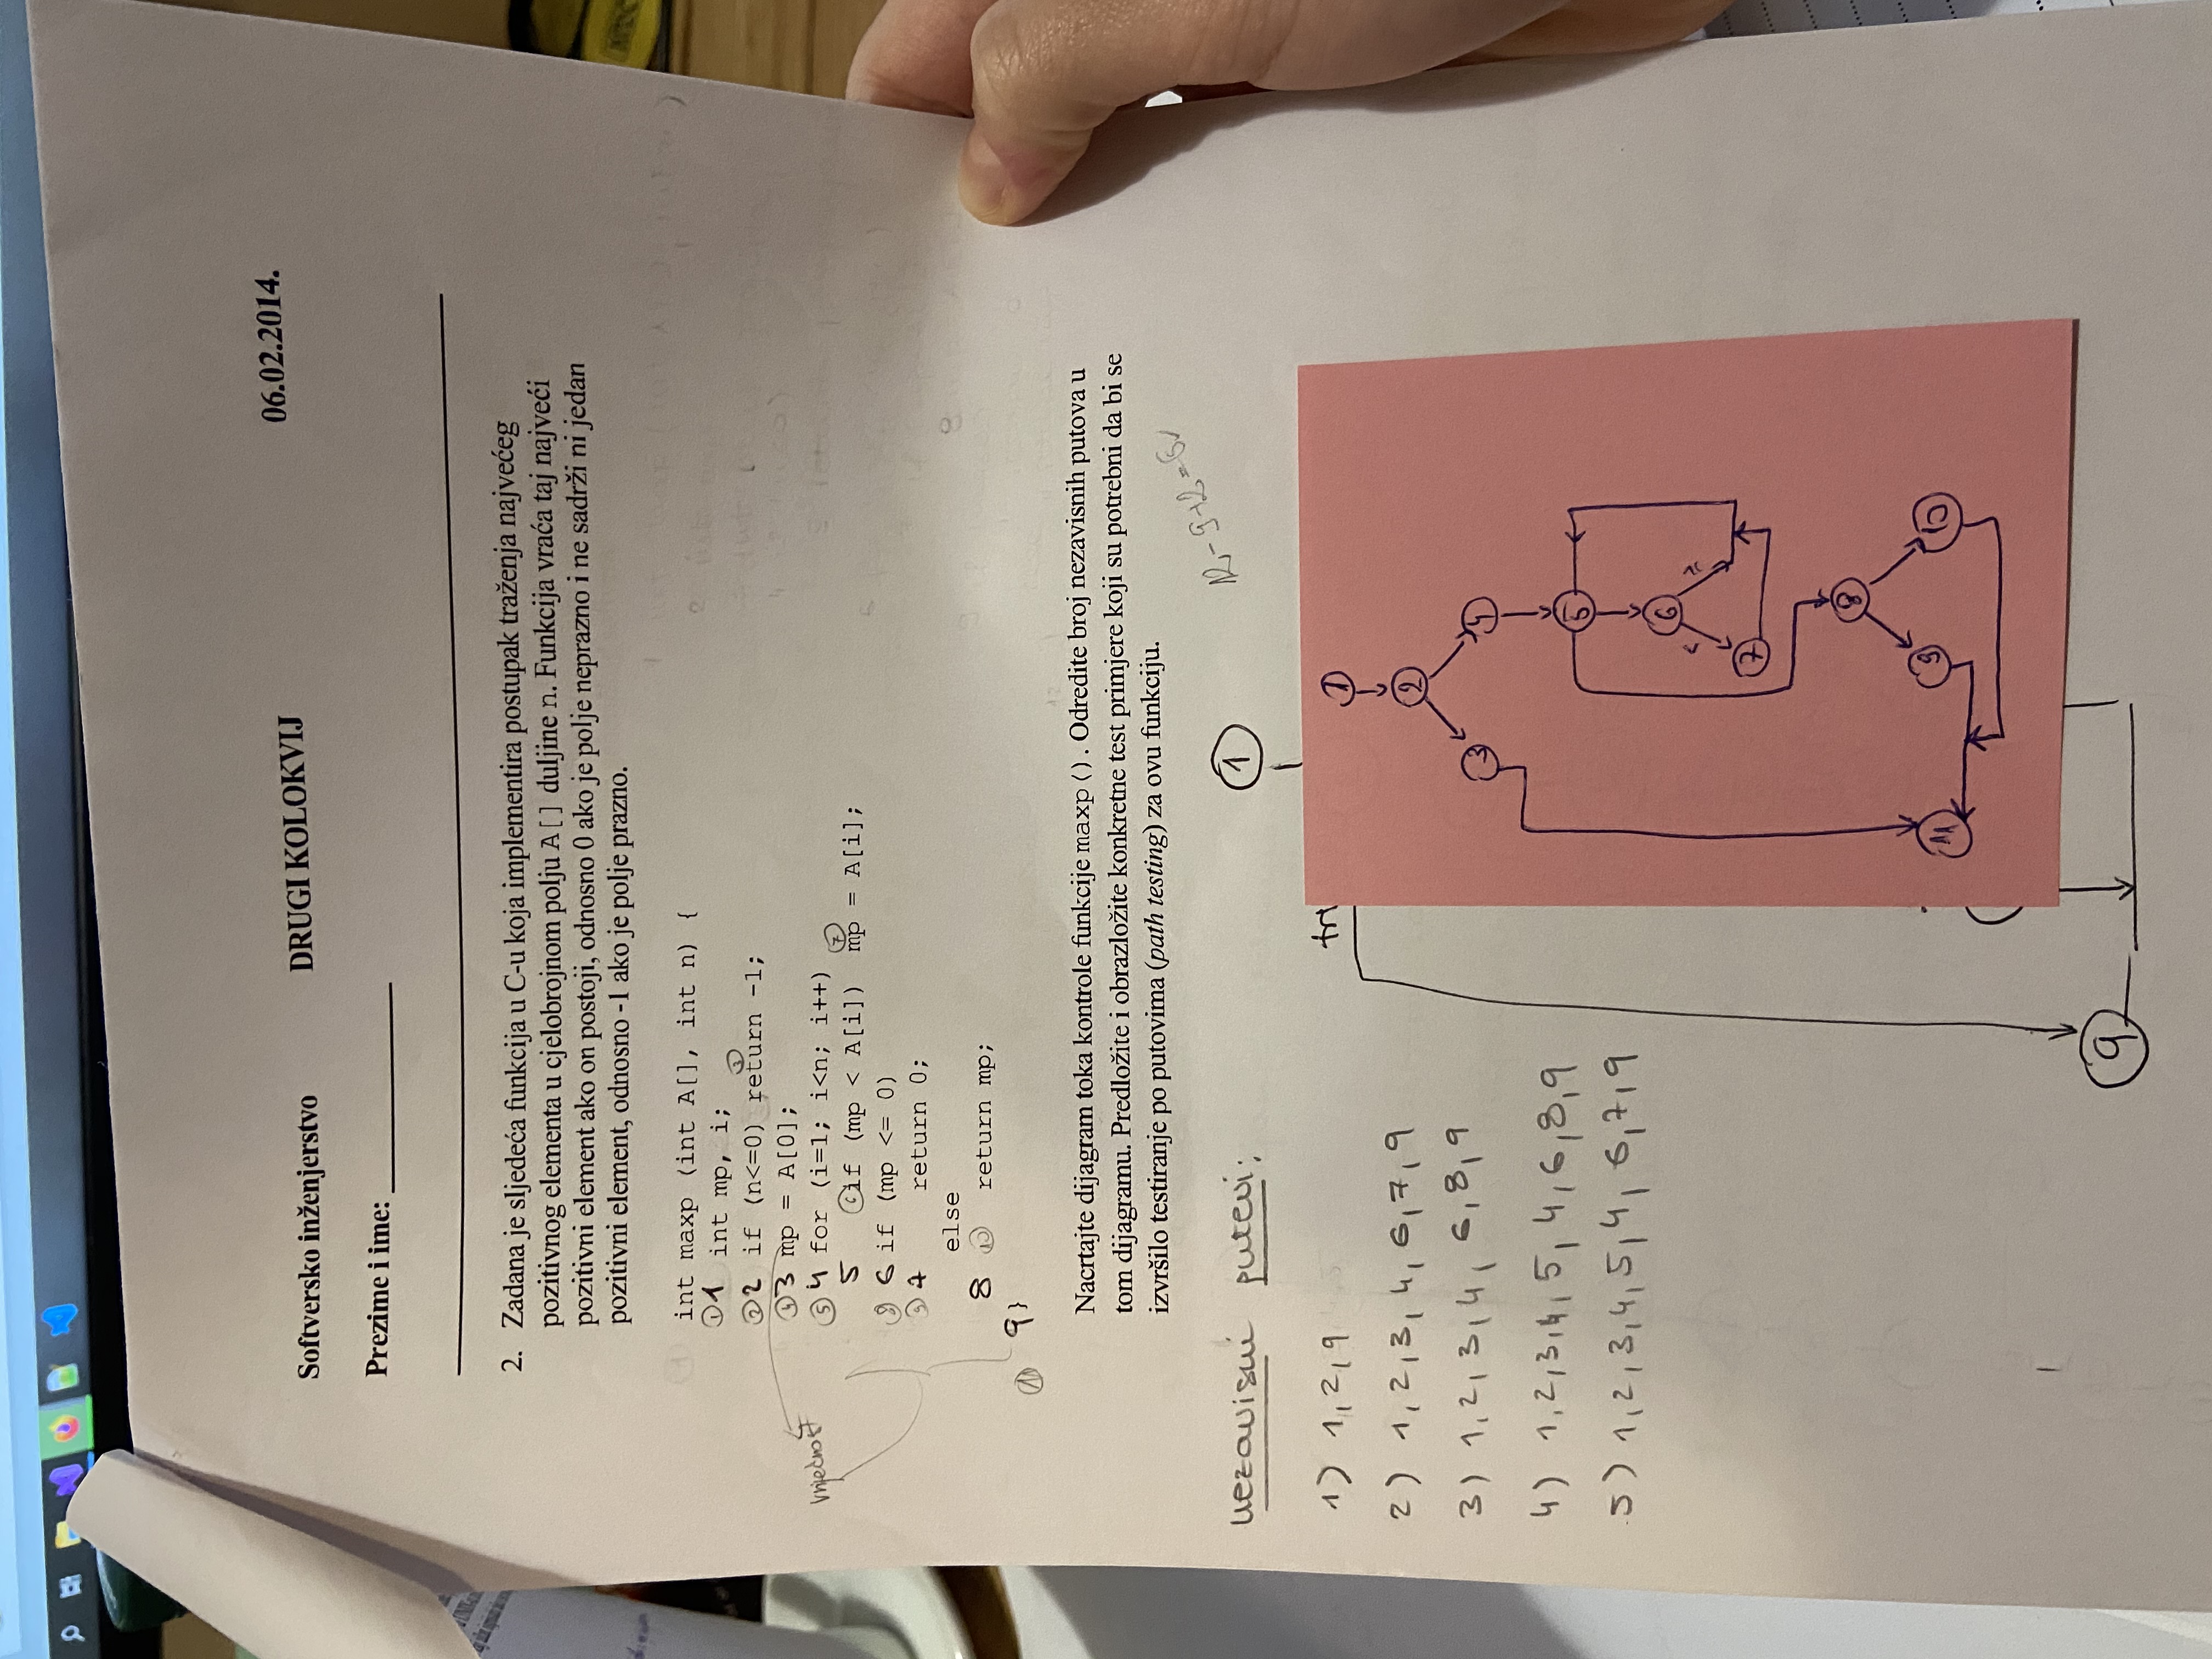 06.02.2014.
Softversko inženjerstvo DRUGI KOLOKVIJ
Prezime i ime: ____________
2. Zadana je sljedeća funkcija u C-u koja implementira postupak traženja najvećeg
pozitivnog elementa u cjelobrojnom polju A[] duljine n. Funkcija vraća taj najveći
pozitivni element ako on postoji, odnosno 0 ako je polje neprazno i ne sadrži ni jedan
pozitivni element, odnosno -1 ako je polje prazno.
int maxp (int A[], int n) {
1 1 int mp, i;
3
2 2 if (n<=0) return -1;
4 3 mp = A[0];
vrijednost
5 4 for (i=1; i<n; i++)
7
5 6 if (mp < A[i]) mp = A[i];
8 6 if (mp <= 0)
9 7 return 0;
else
8 10 return mp;
11 9 }
Nacrtajte dijagram toka kontrole funkcije maxp(). Odredite broj nezavisnih putova u
tom dijagramu. Predložite i obrazložite konkretne test primjere koji su potrebni da bi se
izvršilo testiranje po putovima (path testing) za ovu funkciju.
12-9+2=5
nezavisni putevi:
1) 1, 2, 9
2) 1, 2, 3, 4, 6, 7, 9
3) 1, 2, 3, 4, 6, 8, 9
4) 1, 2, 3, 4, 5, 4, 6, 8, 9
5) 1, 2, 3, 4, 5, 4, 6, 7, 9
1
1
2
3 4
5
6
7
8
9 10
11
9